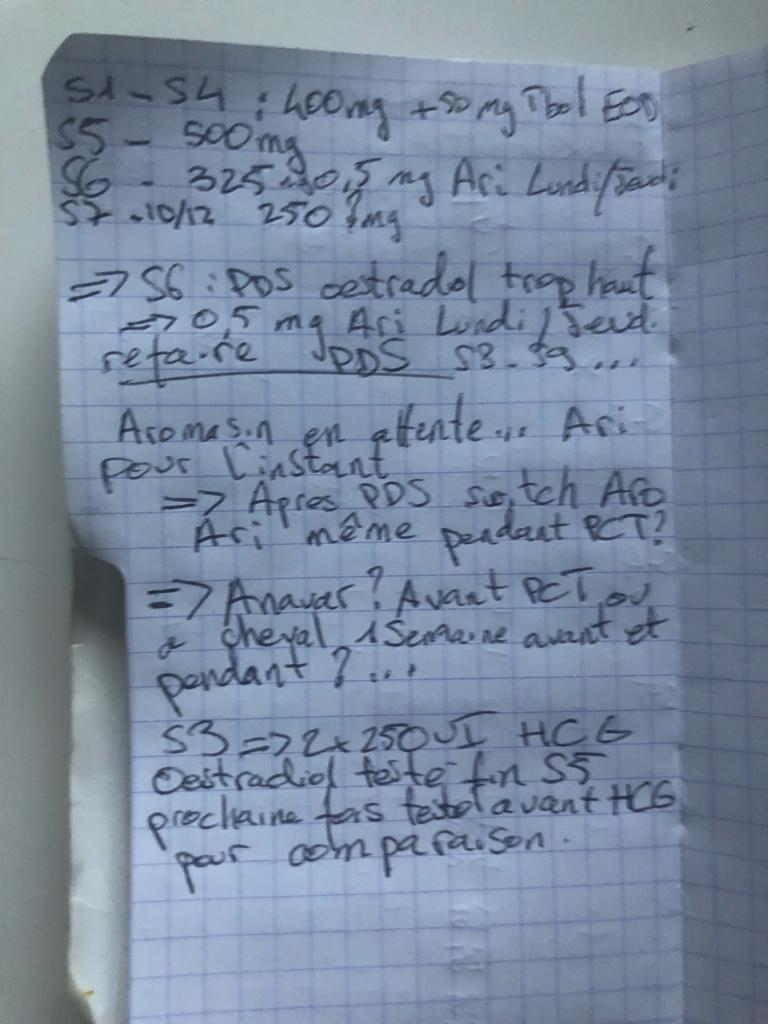 S1 - S4 : 400mg + 50 mg Tbol EOD
S5 - 500mg
S6 - 325 0,5 mg Ari Lundi/Jeudi
S7 - 10/12 250 ? mg
=> S6 : PDS oestradol trop haut
=> 0,5 mg Ari Lundi/Jeudi
refaire PDS S8-S9...
Aromasin en attente... Ari
pour l'instant
=> Apres PDS switch Aro
Ari même pendant PCT?
=> Anavar? Avant PCT ou
a cheval 1 Semaine avant et
pendant ?...
S3 => 2x250UI HCG
Oestradiol testé fin S5
prochaine fois avant HCG
pour comparaison.